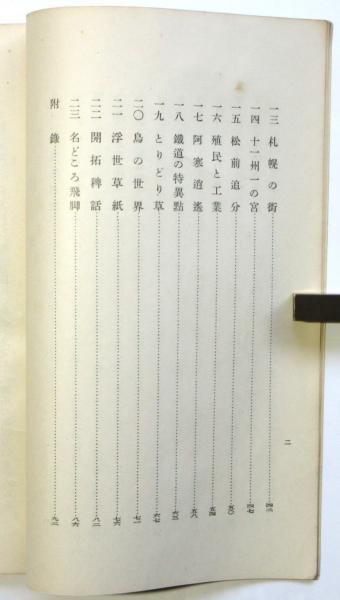 一三 札幌の街 四三
一四 十一州一の宮 四七
一五 松前追分 五〇
一六 殖民と工業 五四
一七 阿寒逍遙 五八
一八 鐵道の特異點 六三
一九 とりどり草 六七
二〇 鳥の世界 七一
二一 浮世草紙 七六
二二 開拓稗話 八二
二三 名どころ飛脚 八六
附錄 九三
二